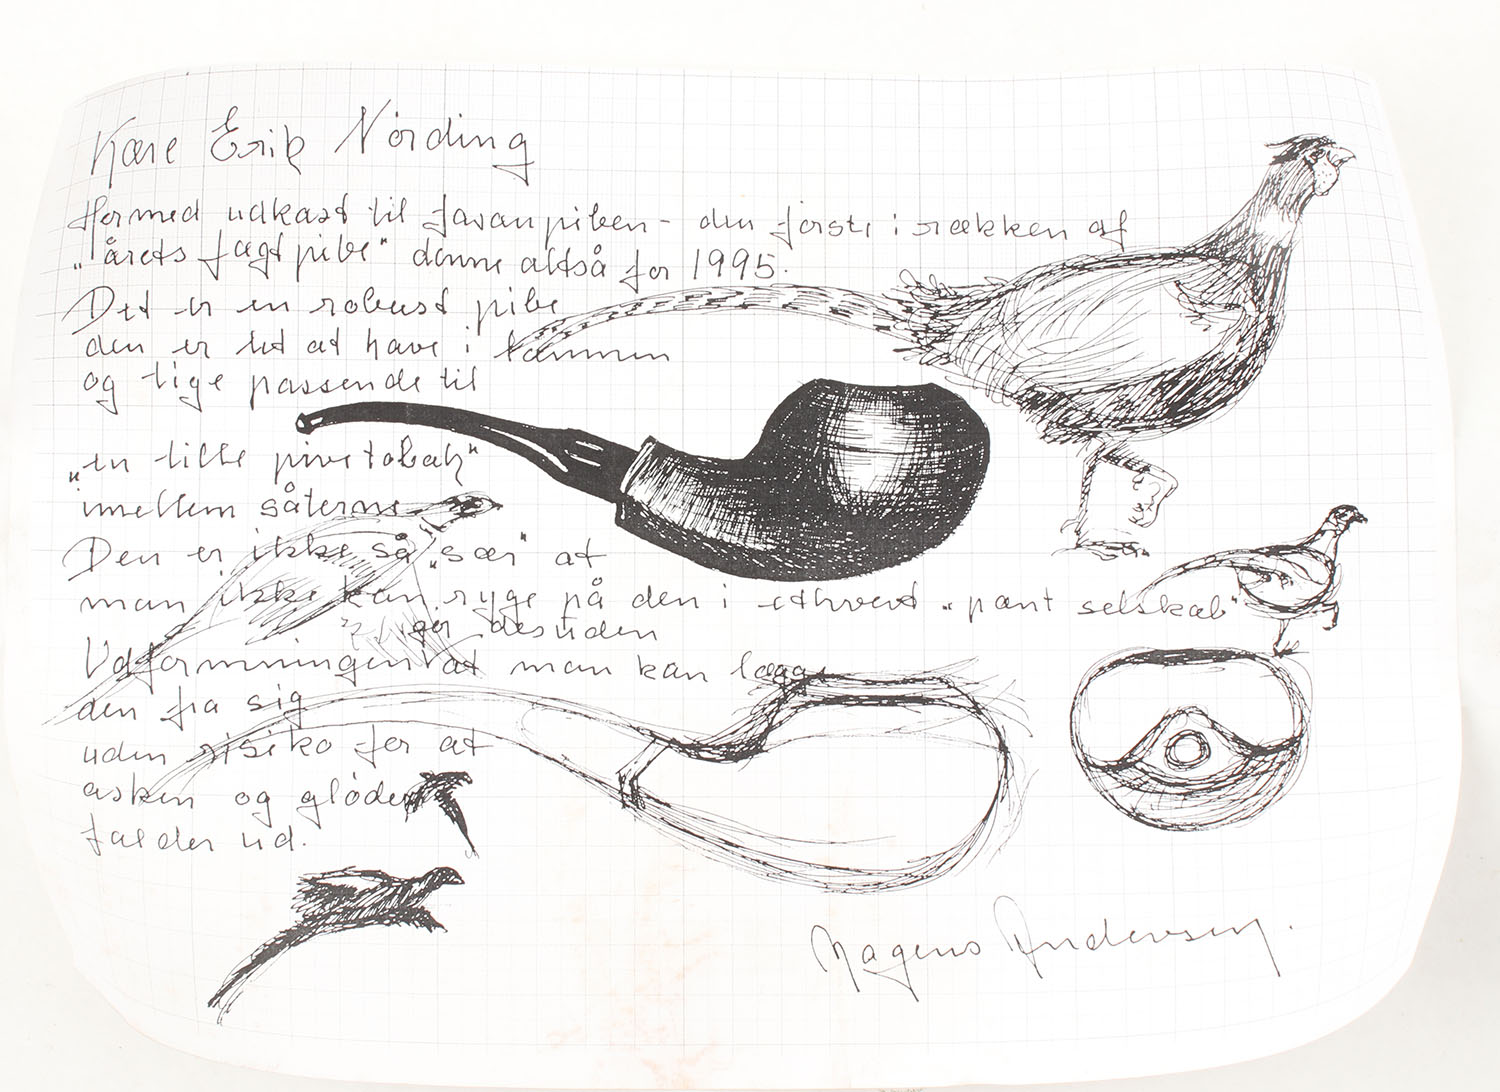 Kære Erik Nørding
Hermed udkast til fasanpiben - den første i rækken af
"årets jagtpibe" denne altså for 1995.
Det er en robust pibe
den er let at have i lommen
og lige passende til
"en lille pivetobak"
imellem såterne
Den er ikke så "sær" at
man ikke kan ryge på den i ethvert "pænt selskab"
gør desuden
Udformningen at man kan lægge
den fra sig
uden risiko for at
asken og gløder
falder ud.
Mogens Andersen.